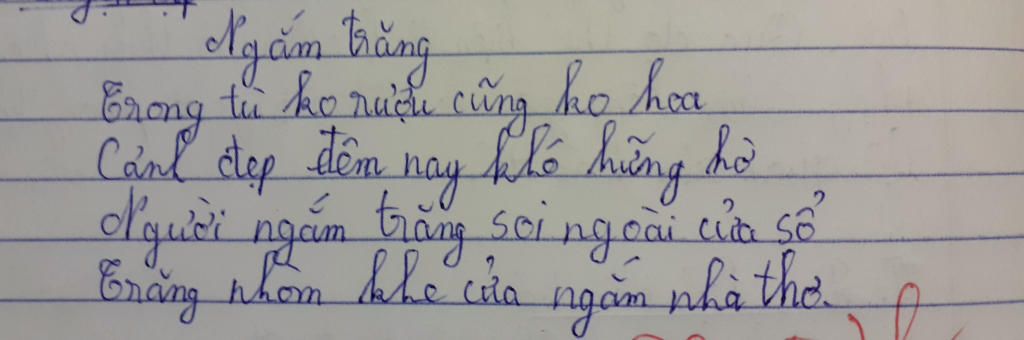 Ngắm trăng
Trong tù ko rượu cũng ko hoa
Cảnh đẹp đêm nay khó hững hờ
Người ngắm trăng soi ngoài cửa sổ
Trăng nhòm khe cửa ngắm nhà thơ.